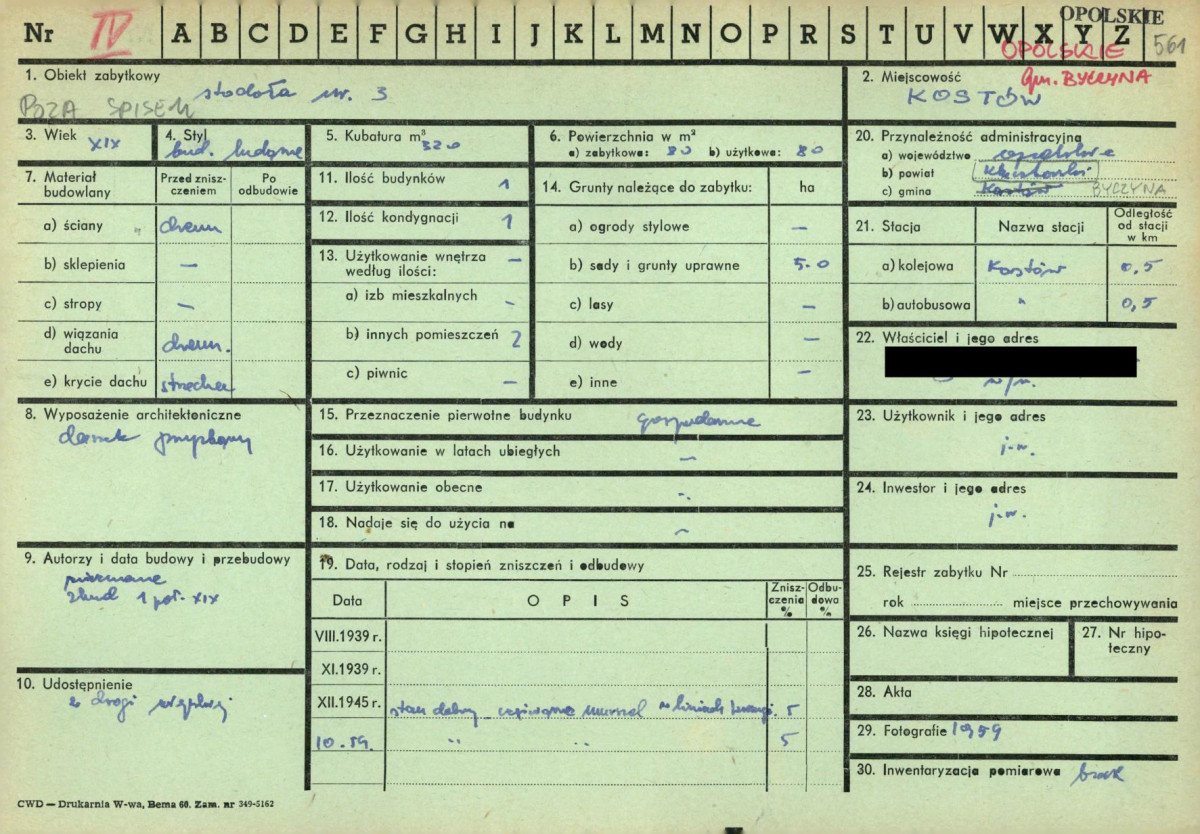 Nr IV A B C D E F G H I J K L M N O P R S T U V W X Y Z 561
OPOLSKIE
OPOLSKIE
Gm. BYCZYNA
1. Obiekt zabytkowy
POZA SPISEM
stodoła nr. 3
2. Miejscowość
KOSTÓW
3. Wiek XIX
4. Styl
bud. ludowe
5. Kubatura m³ 320
6. Powierzchnia w m²
a) zabytkowa: 80 b) użytkowa: 80
7. Materiał budowlany
Przed zniszczeniem
Po odbudowie
a) ściany drewn
b) sklepienia –
c) stropy –
d) wiązania dachu drewn.
e) krycie dachu strzecha
8. Wyposażenie architektoniczne
9. Autorzy i data budowy i przebudowy
nieznane
zbud 1 poł. XIX
10. Udostępnienie
z drogi
11. Ilość budynków 1
12. Ilość kondygnacji 1
13. Użytkowanie wnętrza według ilości: –
a) izb mieszkalnych -
b) innych pomieszczeń 2
c) piwnic –
14. Grunty należące do zabytku: ha
a) ogrody stylowe –
b) sady i grunty uprawne 5.0
c) lasy –
d) wody –
e) inne –
15. Przeznaczenie pierwotne budynku gospodarcze
16. Użytkowanie w latach ubiegłych –
17. Użytkowanie obecne -.
18. Nadaje się do użycia na ~
19. Data, rodzaj i stopień zniszczeń i odbudowy
Data
OPIS
Zniszczenia %
Odbudowa %
VIII.1939 r.
XI.1939 r.
XII.1945 r. stan dobry 5
10.59. " " 5
20. Przynależność administracyjna
a) województwo opolskie
b) powiat Kluczborski
c) gmina Kostów BYCZYNA
21. Stacja
Nazwa stacji
Odległość od stacji w km
a) kolejowa Kostów 0,5
b) autobusowa " 0,5
22. Właściciel i jego adres
w/m.
23. Użytkownik i jego adres
j.w.
24. Inwestor i jego adres
j.w.
25. Rejestr zabytku Nr
rok miejsce przechowywania
26. Nazwa księgi hipotecznej
27. Nr hipoteczny
28. Akta
29. Fotografie 1959
30. Inwentaryzacja pomiarowa brak
CWD — Drukarnia W-wa, Bema 60. Zam. nr 349-5162